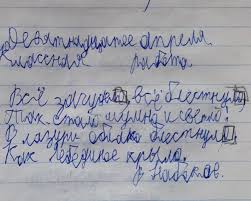 Девятнадцатое апреля
Классная работа
Всё всё блестнуло
Так стало и светло.
В лазури облако блестнуло
Как лебединое крыло.
Набоков.